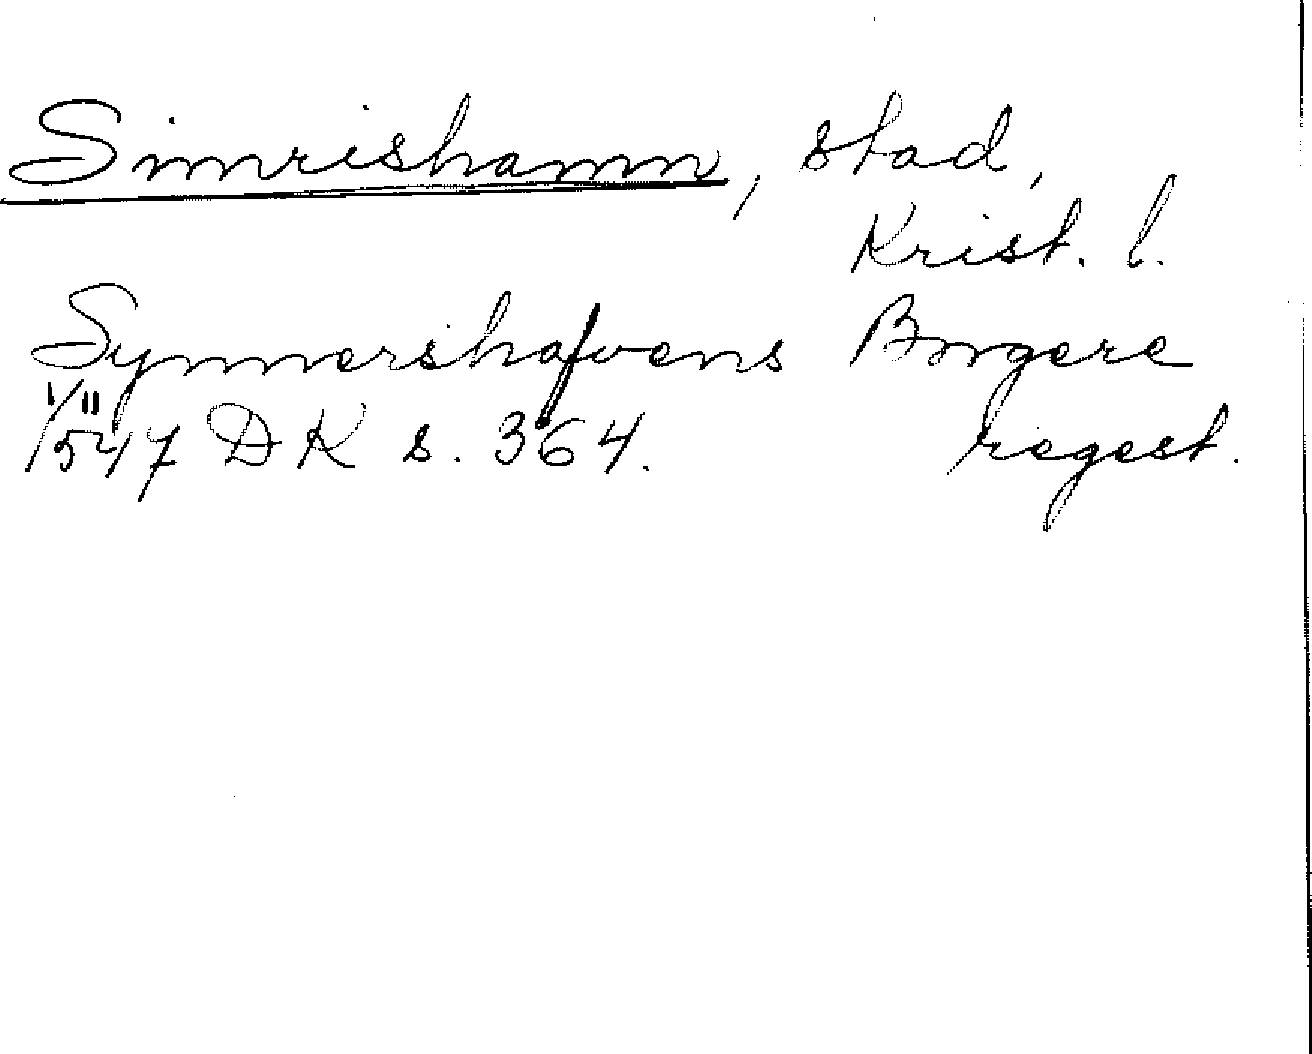 Simrishamn, stad,
Krist. l.
Symmershafvens Borgere
1/11
1547 DK s. 364. regest.